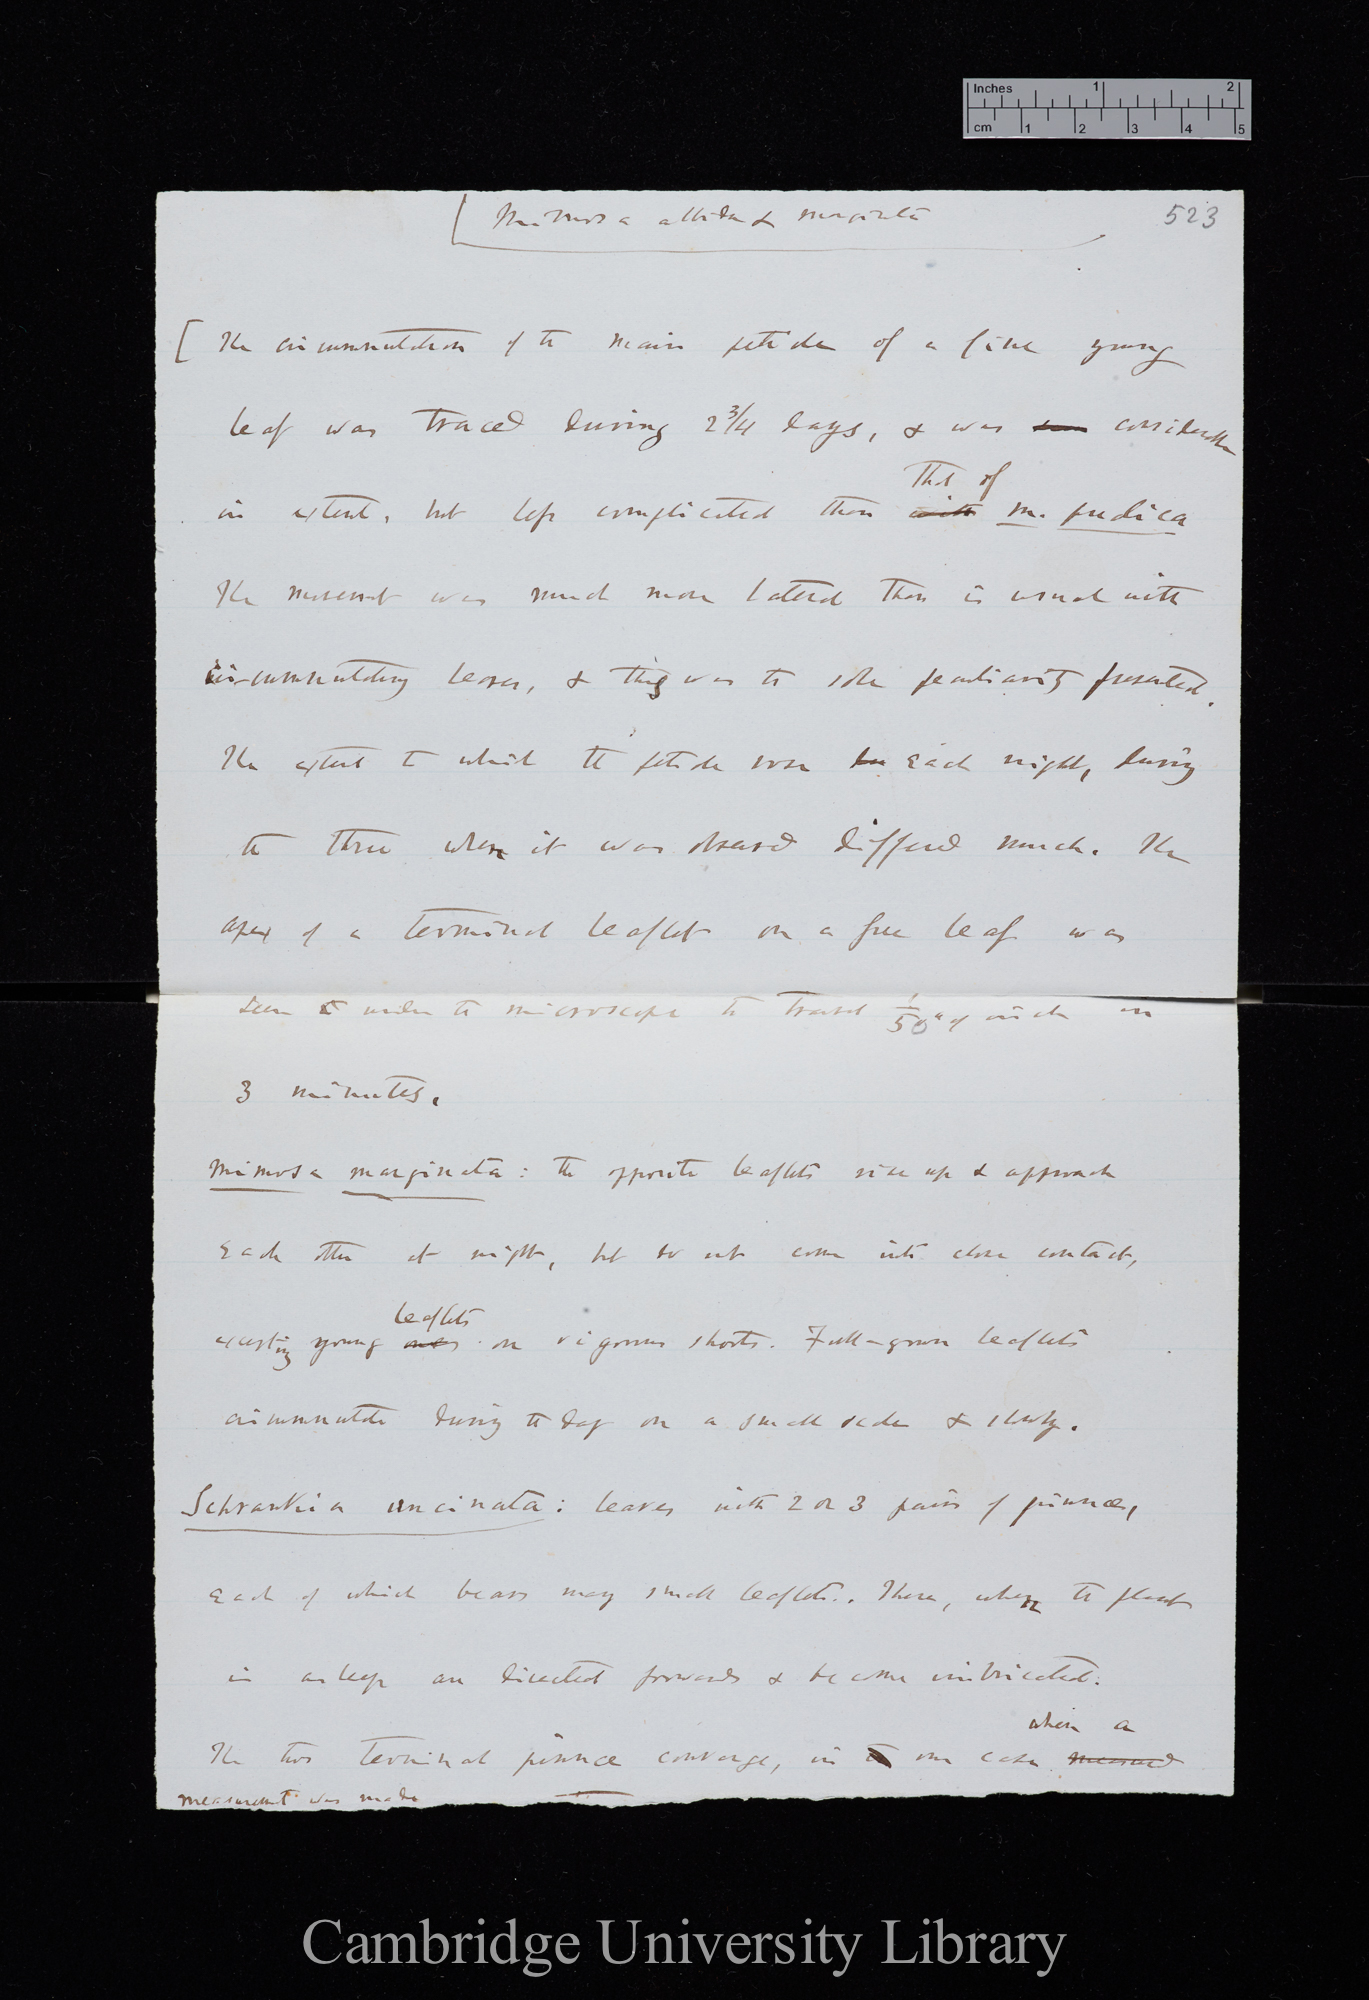 Inches 1 2
cm 1 2 3 4 5
Mimosa albida & marginata
523
[The circumnutation of the main petiole of a fine young
leaf was traced during 2 3/4 days, & was considerable
that of
in extent, but less complicated than with M. pudica
The movement was much more lateral than is usual with
circumnutating leaves, & this was the sole peculiarity presented.
The extent to which the petiole rose each night, during
the three when it was observed differed much. The
apex of a terminal leaflet on a fine leaf was
seen under the microscope to travel 1/50th of inch in
3 minutes.
Mimosa marginata: the opposite leaflets rise up & approach
each other at night, but do not come into close contact,
leaflets
excepting young ones on vigorous shoots. Full-grown leaflets
circumnutate during the day on a small scale & slowly.
Schrankia uncinata: leaves with 2 or 3 pairs of pinnae,
each of which bears many small leaflets. These, when the plant
is asleep are directed forwards & become imbricated.
when a
The two terminal pinnae converge, in one case measured
measurement was made
Cambridge University Library